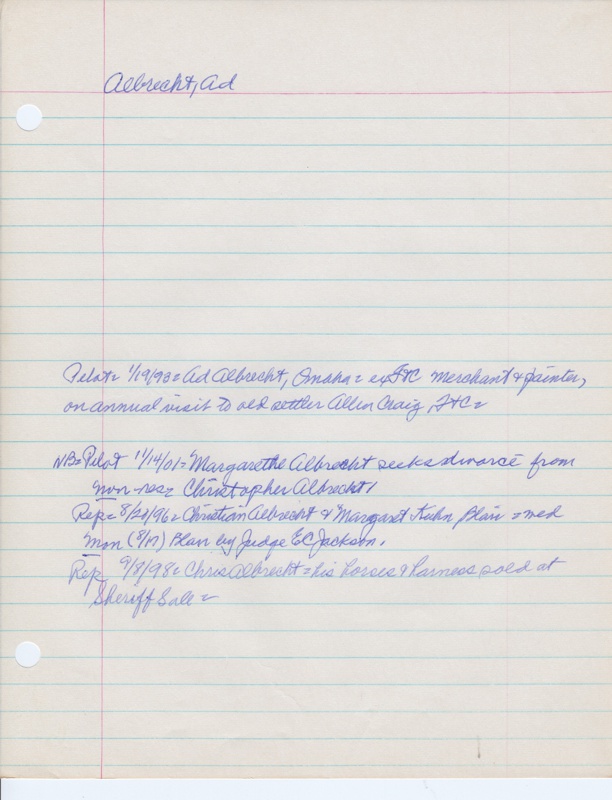 Albrecht, Ad
Pilot= 1/19/98= Ad Albrecht, Omaha= ex FtC merchant & painter,
on annual visit to old settler Allen Craig, FtC=
NB= Pilot 11/14/01= Margarethe Albrecht seeks divorce from
non-res= Christopher Albrecht/
Rep= 8/20/96= Christian Albrecht & Margaret Kuhn Blair = wed
Mon (8/17) Blair by Judge EC Jackson.
Rep 9/8/98= Chris Albrecht= his horses & harness sold at
Sheriff Sale=